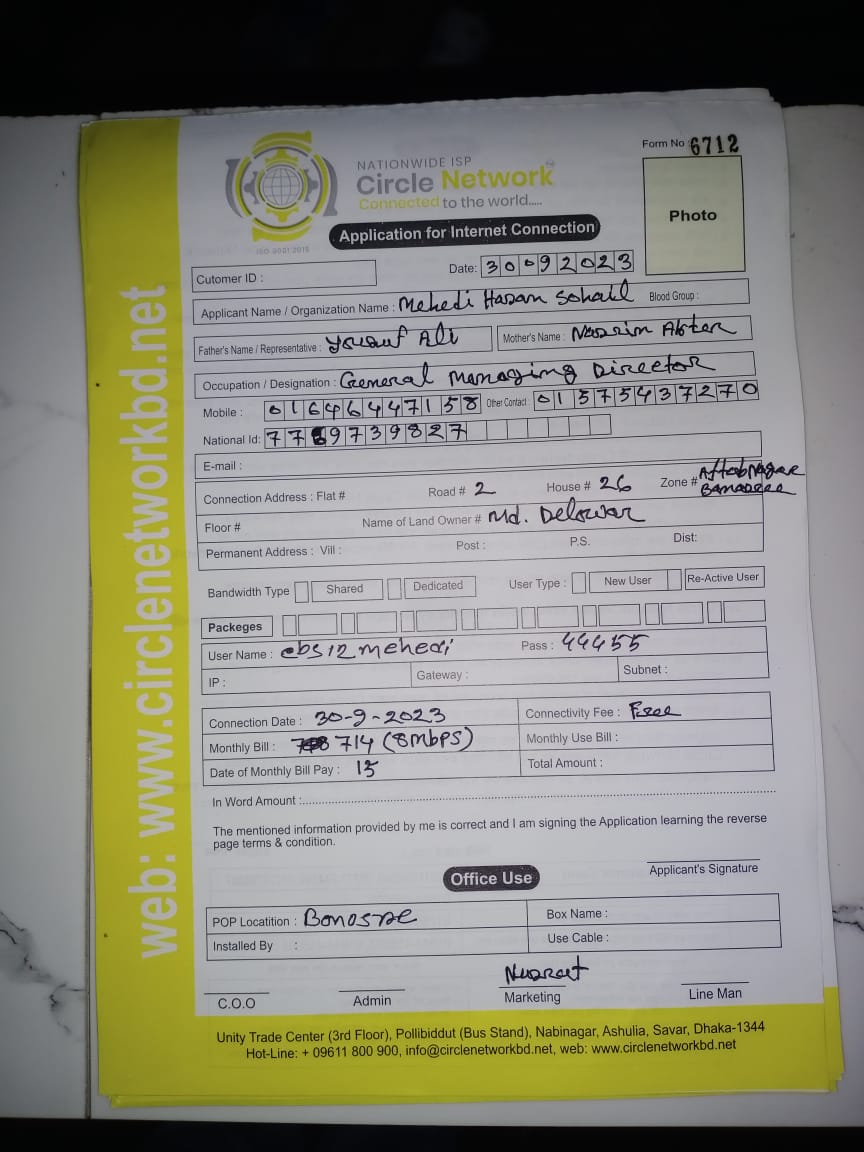 Form No 6712
NATIONWIDE ISP
Circle Network
Connected to the world.....
ISO 9001:2015
Photo
Application for Internet Connection
Date: 30092023
Cutomer ID :
Applicant Name / Organization Name : Mehedi Hasan Sohail Blood Group :
Father's Name / Representative : Yousuf Ali Mother's Name : Nasrin Akter
Occupation / Designation : General Managing Director
Mobile : 01646447158 Other Contact : 01575437270
National Id: 7739739827
E-mail :
Connection Address : Flat # Road # 2 House # 26 Zone # Aftabnagar
Banasree
Floor # Name of Land Owner # Md. Delowar
Permanent Address : Vill : Post : P.S. Dist:
Bandwidth Type Shared Dedicated User Type : New User Re-Active User
Packeges
User Name : cbs12mehedi Pass : 44455
IP : Gateway : Subnet :
Connection Date : 30-9-2023 Connectivity Fee : Free
Monthly Bill : 714 (8mbps) Monthly Use Bill :
Date of Monthly Bill Pay : 15 Total Amount :
In Word Amount :
The mentioned information provided by me is correct and I am signing the Application learning the reverse
page terms & condition.
Applicant's Signature
Office Use
POP Locatition : Bonosre Box Name :
Installed By : Use Cable :
Nusrat
C.O.O Admin Marketing Line Man
Unity Trade Center (3rd Floor), Pollibiddut (Bus Stand), Nabinagar, Ashulia, Savar, Dhaka-1344
Hot-Line: + 09611 800 900, info@circlenetworkbd.net, web: www.circlenetworkbd.net
web: www.circlenetworkbd.net